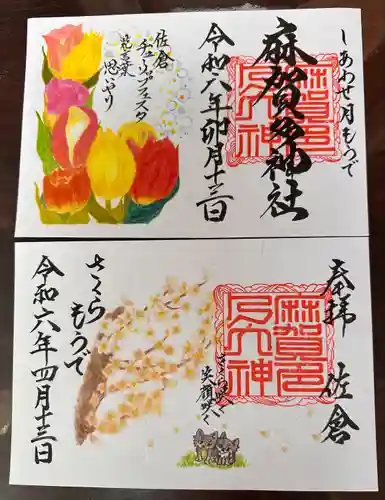 しあわせ月もうで
麻賀多神社
麻賀多大神
令和六年卯月十三日
佐倉
チューリップフェスタ
花言葉
思いやり
奉拝 佐倉
麻賀多大神
さくら咲く
笑顔咲く
さくら
もうで
令和六年四月十三日